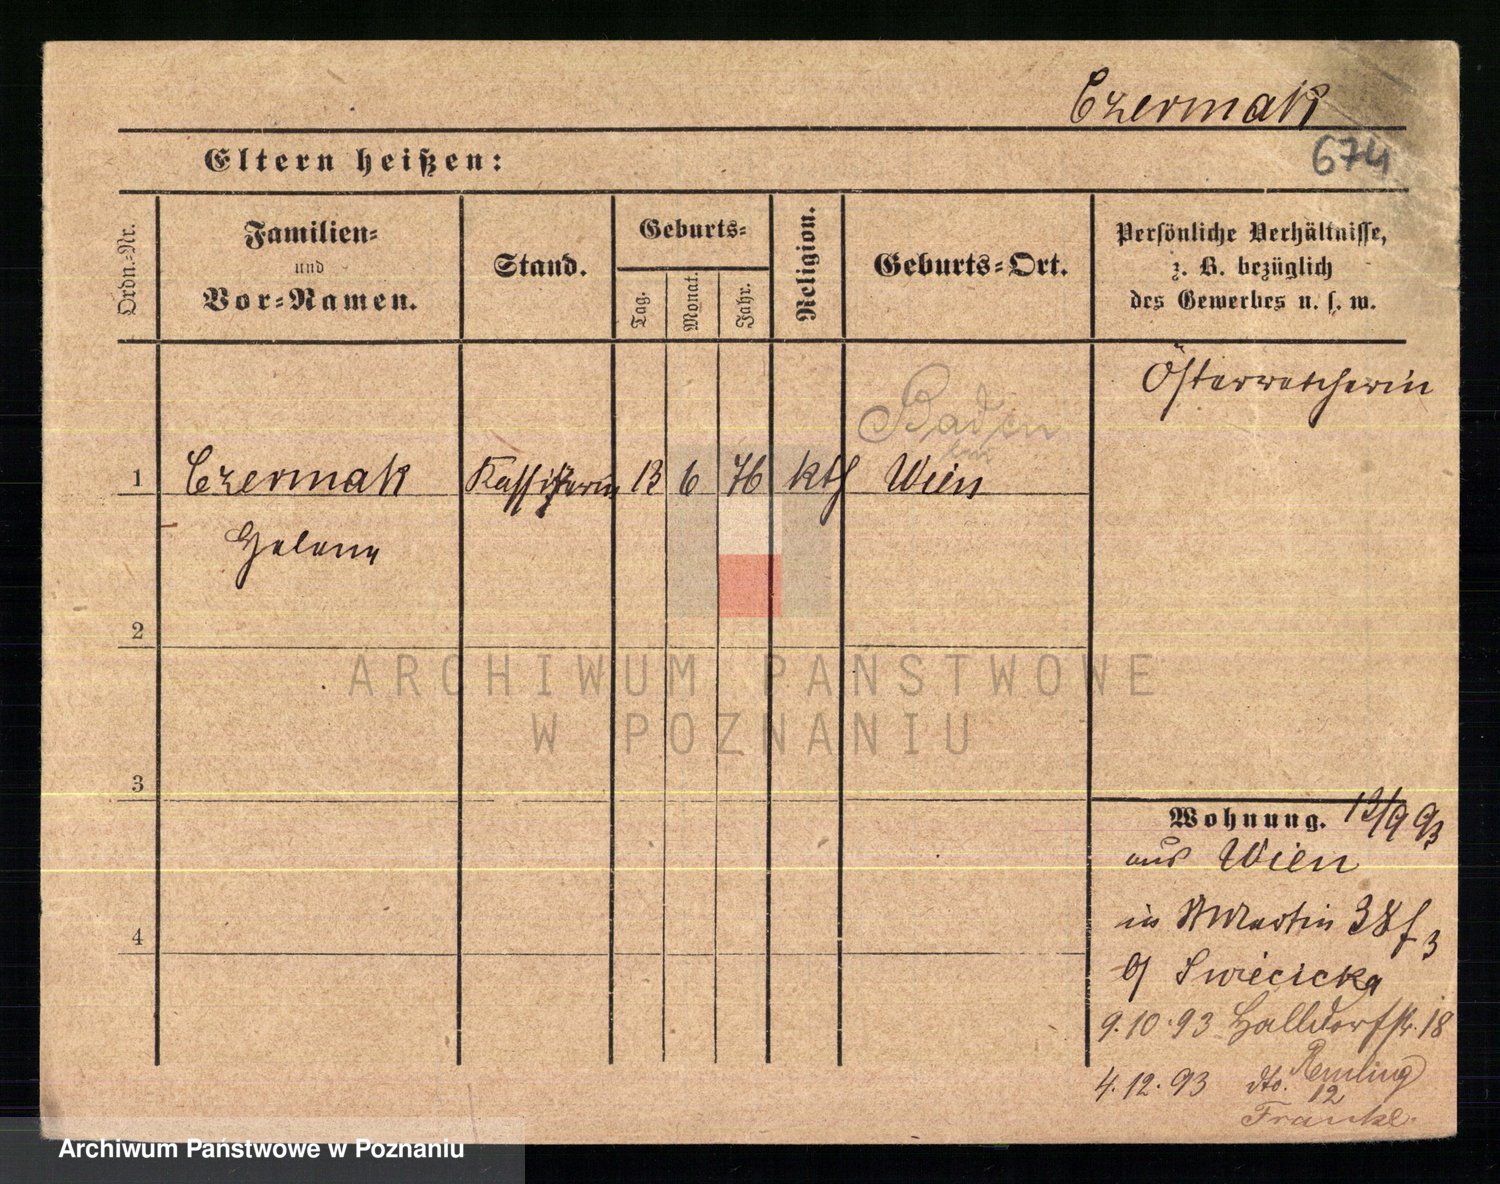 Czermak
Eltern heißen:
674
Ordn.-Nr.
Familien-
und
Vor-Namen.
Stand.
Geburts-
Tag.
Monat.
Jahr.
Religion.
Geburts-Ort.
Persönliche Verhältnisse,
z. B. bezüglich
des Gewerbes u. s. w.
Österreicherin
Baden
bei
1 Czermak Kassirerin 13 6 76 kth Wien
Helene
2
3
4
ARCHIWUM PAŃSTWOWE
W POZNANIU
Wohnung. 13/9 93
aus Wien
in St Martin 38 f 3
b/ Swiecicka
9.10.93 Halldorfstr. 18
Remling
4.12.93 dto. 12
Frankl.
Archiwum Państwowe w Poznaniu